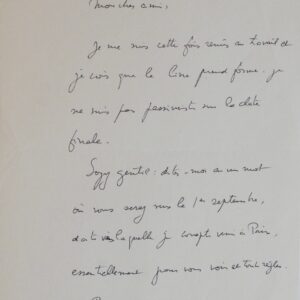 Mon cher ami,
Je me suis cette fois remis au travail et
je crois que le livre prend forme. Je
ne suis pas pessimiste sur la date
finale.
Soyez gentil : dites-moi en un mot
où vous serez vers le 1er septembre,
date à laquelle je compte venir à Paris,
essentiellement pour vous voir et tout régler.